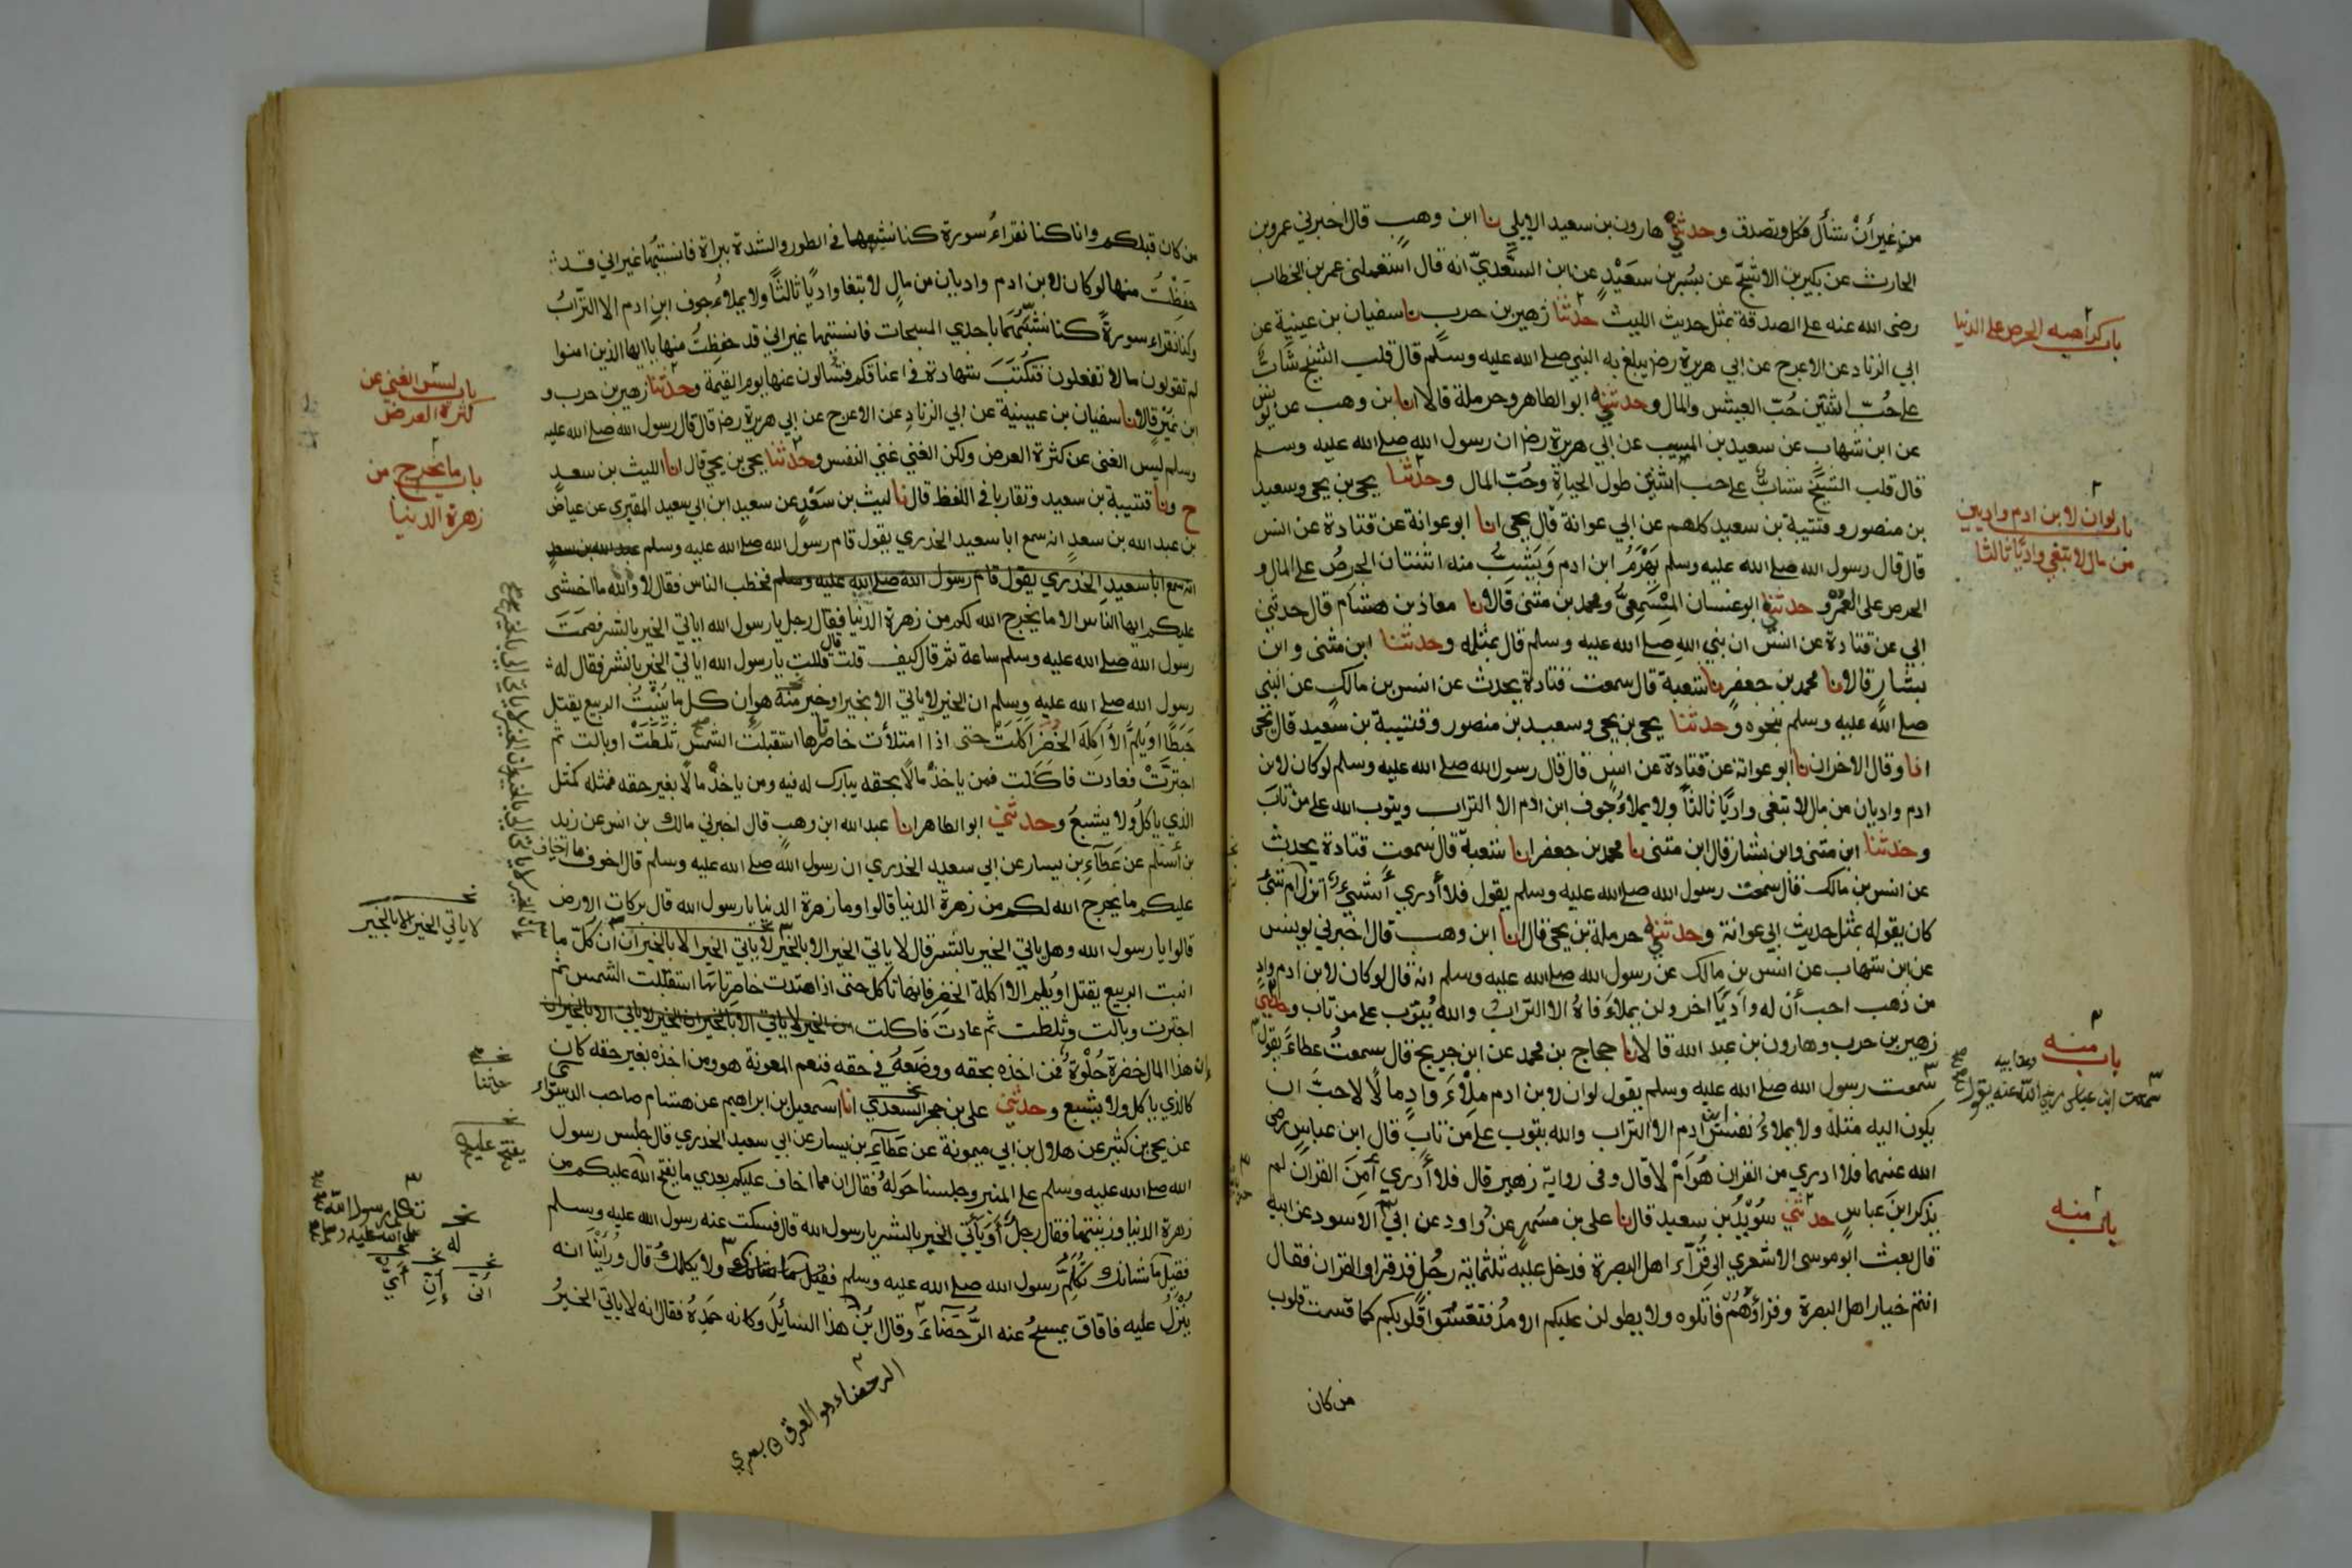 من غير أن تسأل فكل وتصدق وحدثني هارون بن سعيد الايلي نا ابن وهب قال اخبرني عمرو بن
الحارث عن بكير بن الاشج عن بسر بن سعيد عن ابن السعدي انه قال استعملني عمر بن الخطاب
رضى الله عنه على الصدقة بمثل حديث الليث حدثنا زهير بن حرب نا سفيان بن عيينة عن
ابي الزناد عن الاعرج عن ابي هريرة رضـ يبلغ به النبي صلے الله عليه وسلم قال قلب الشيخ شاب
على حُبّ اثنتين حُبّ العيش والمال وحدثني ابو الطاهر وحرملة قالا انا ابن وهب عن يونس
عن ابن شهاب عن سعيد بن المسيب عن ابي هريرة رضـ ان رسول الله صلے الله عليه وسلم
قال قلب الشيخ شاب على حب اثنتين طول الحياة وحُبّ المال وحدثنا يحيى بن يحيى وسعيد
بن منصور وقتيبة بن سعيد كلهم عن ابي عوانة قال يحيى انا ابو عوانة عن قتادة عن انس
قال قال رسول الله صلے الله عليه وسلم يَهْرَمُ ابن ادم وَيَشِبُّ منه اثنتان الحرصُ على المال و
الحرص على العُمُر وحدثني ابو غسان المِسْمَعِيّ ومحمد بن مثنى قالا نا معاذ بن هشام قال حدثني
ابي عن قتادة عن انس ان نبي الله صلے الله عليه وسلم قال بمثله وحدثنا ابن مثنى وابن
بشار قالا نا محمد بن جعفر نا شعبة قال سمعت قتادة يحدث عن انس بن مالك عن النبي
صلے الله عليه وسلم بنحوه وحدثنا يحيى بن يحيى وسعيد بن منصور وقتيبة بن سعيد قال يحيى
انا وقال الاخران نا ابو عوانة عن قتادة عن انس قال قال رسول الله صلے الله عليه وسلم لو كان لابن
ادم واديان من مال لابتغى واديًا ثالثًا ولا يملاءُ جوف ابن ادم الا التراب ويتوب الله على من تاب
وحدثنا ابن مثنى وابن بشار قال ابن مثنى نا محمد بن جعفر انا شعبة قال سمعت قتادة يحدث
عن انس بن مالك قال سمعت رسول الله صلے الله عليه وسلم يقول فلا أدري أشيء انزل ام شئ
كان يقوله بمثل حديث ابي عوانة وحدثني حرملة بن يحيى قال انا ابن وهب قال اخبرني يونس
عن ابن شهاب عن انس بن مالك عن رسول الله صلے الله عليه وسلم انه قال لو كان لابن ادم وادٍ
من ذهب احب أن له واديًا اخر ولن يملاءَ فاهُ الا التراب والله يتوب على من تاب وحدثني
زهير بن حرب وهارون بن عبد الله قالا نا حجاج بن محمد عن ابن جريج قال سمعتُ عطاءً يقول
سمعت رسول الله صلے الله عليه وسلم يقول لو ان لابن ادم مِلْأَ وادٍ مالًا لاحبَّ ان
يكون اليه مثله ولا يملاءُ نفس ابن ادم الا التراب والله يتوب على من تاب قال ابن عباس رضى
الله عنهما فلا ادري من القران هُوَ أَمْ لا قال وفى رواية زهير قال فلا أدري أَمِنَ القران لم
يذكر ابن عباس حدثني سُوَيْدُ بن سعيد قال نا على بن مسهر عن داود عن ابي الاسود عن ابيه
قال بعث ابو موسى الاشعري الى قُرّاء اهل البصرة فدخل عليه ثلثمائة رجُل قد قراوا القران فقال
انتم خيار اهل البصرة وقراؤهم فاتلوه ولا يطولن عليكم الامدُ فتقسُوَا قلوبكم كما قست قلوب
من كان
باب كراهيه الحرص على الدنيا
باب لو ان لابن ادم واديين
من مال لابتغى واديًا ثالثا
باب منه
سمعت ابن عباس رضى الله عنه يقول
باب منه
من كان قبلكم وانا كنا نقراءُ سورة كنا نشبهها فى الطور والشدة ببراة فانسيتُها غير اني قد
حفظْتُ منها لو كان لابن ادم واديان من مالٍ لابتغا واديًا ثالثًا ولا يملاءُ جوف ابن ادم الا الترابُ
وكنا نقراء سورةً كنا نشبّهُهَا باحدي المسبحات فانسيتها غير اني قد حفظتُ منها ياايها الذين امنوا
لم تقولون مالا تفعلون فتكتبَ شهادة فى اعناقكم فتسالون عنها يوم القيمة وحدثنا زهير بن حرب و
ابن نميرٍ قالا نا سفيان بن عيينة عن ابي الزناد عن الاعرج عن ابي هريرة رضـ قال قال رسول الله صلے الله عليه
وسلم ليس الغنى عن كثرة العرض ولكن الغني غني النفس وحدثنا يحيى بن يحيى قال انا الليث بن سعد
ح ونا قتيبة بن سعيد وتقاربا فى اللفظ قال نا ليث بن سَعْدٍ عن سعيد ابن ابي سعيد المقبري عن عياض
بن عبد الله بن سعدٍ انه سمع ابا سعيد الخدري يقول قام رسول الله صلے الله عليه وسلم عبد الله بن سعد
انه سمع ابا سعيد الخدري يقول قام رسول الله صلے الله عليه وسلم فخطب الناس فقال لا والله ما اخشى
عليكم ايها الناس الا ما يخرج الله لكم من زهرة الدنيا فقال رجل يا رسول الله اياتي الخير بالشر فصَمَتَ
رسول الله صلے الله عليه وسلم ساعة ثم قال كيف قلت قال قلت يا رسول الله اياتي الخير بالشر فقال له
رسول الله صلے الله عليه وسلم ان الخير لا ياتي الا بخير اوخير هو ان كل ما يُنْبِتُ الربيع يقتل
حَبَطًا اويُلِمُّ الا آكلَةَ الخُضَرَ اَكَلَتْ حتى اذا امتلأت خاصرتاها استقبلت الشمس ثلطَتْ اوبالت ثم
اجترَّتْ فعادت فاكلت فمن ياخذْ مالًا بحقه يبارك له فيه ومن ياخذْ مالًا بغير حقه فمثله كمثل
الذي ياكلُ ولا يشبعُ وحدثني ابو الطاهر انا عبد الله ابن وهب قال اخبرني مالك بن انس عن زيد
بن أسلم عن عَطَاءِ بن يسار عن ابي سعيد الخدري ان رسول الله صلے الله عليه وسلم قال اخوف ما اخاف
عليكم ما يخرج الله لكم من زهرة الدنيا قالوا وما زهرة الدنيا يا رسول الله قال بركات الارض
قالوا يا رسول الله وهل ياتي الخير بالشر قال لا ياتي الخير الا بالخير لا ياتي الخير الا بالخير ان كلّ ما
انبت الربيع يقتل اويُلِم الا اكلة الخضر فانها تاكل حتى اذا امتدت خاصرتاها استقبلت الشمس ثم
اجترت وبالت وثلطت ثم عادت فاكلت ان الخير لا ياتي الا بالخير ان الخير لا ياتي الا بالخير ان
ان هذا المال خضرة حُلْوَة فمن اخذه بحقه ووضَعهُ في حقه فنعم المعونة هو ومن اخذه بغير حقه كان
كالذي ياكل ولا يشبع وحدثني على بن حجر السعدي انا اسمعيل بن ابراهيم عن هشام صاحب الدستواء
عن يحيى بن كثير عن هلال بن ابي ميمونة عن عَطَاءِ بن يسار عن ابي سعيد الخدري قال جلس رسول
الله صلے الله عليه وسلم على المنبر وجلسنا حَولهُ فقال ان مما اخاف عليكم بعدي ما يفتح الله عليكم من
زهرة الدنيا وزينتها فقال رجلٌ أَوَيَأتي الخير بالشر يا رسول الله قال فسكت عنه رسول الله عليه وسلم
فقيل ما شانك تُكَلِّمُ رسول الله صلے الله عليه وسلم ولا يكلمك قال ورُأيْنا انه
يُنْزَلُ عليه فافاق يمسحُ عنه الرُّحَضَاءَ وقال اين هذا السايلَ وكانه حَمِدهُ فقال انه لا ياتي الخيرُ
الرحضاء هو العرق
باب ليس الغنى عن
كثرة العرض
باب ما يخرج من
زهرة الدنيا
لا ياتي الخير الا بالخير
حدثنا
يفتح عليكم
تكلم رسول الله
صلى الله عليه وسلم
له
أنى
إن
أي